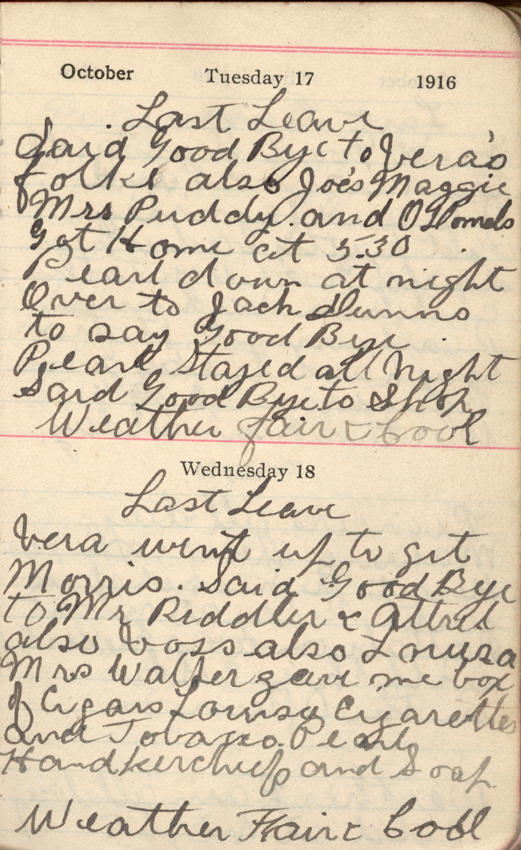 October Tuesday 17 1916
Last Leave
Said Good Bye to Vera's
folks also Joe's Maggie
Mrs Puddy and
Got Home at 5.30
Pearl down at night
Over to Jack Dunns
to say Good Bye
Pearl Stayed all Night
Said Good Bye to Shop
Weather fair & Cool
Wednesday 18
Last Leave
Vera went up to get
Morris. Said Good Bye
to Mr Riddler &
also Voss also Louisa
Mrs Walter gave me box
of Cigars Louisa Cigarettes
and Tobacco Pearl
Handkerchief and Soap
Weather Fair & Cool